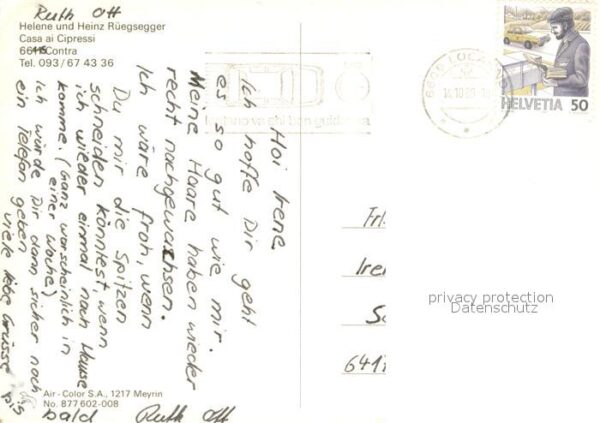 Ruth Ott
Helene und Heinz Rüegsegger
Casa ai Cipressi
6645 Contra
Tel. 093/67 43 36
6600 LOCARNO
HELVETIA 50
lontano va chi ben guida
Hoi Irene
Ich hoffe Dir geht
es so gut wie mir.
Meine Haare haben wieder
recht nachgewachsen.
Ich wäre froh, wenn
Du mir die Spitzen
schneiden könntest, wenn
ich wieder einmal nach Hause
komme. (Ganz warscheinlich in
einer Woche)
Ich würde Dir dann sicher noch
ein Telefon geben
viele liebe Grüsse bis
bald Ruth Ott
Frl.
Ire
641
privacy protection
Datenschutz
Air - Color S.A., 1217 Meyrin
No. 877 602-008